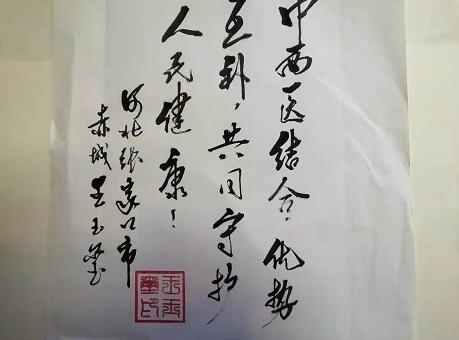 中西医结合，优势
互补，共同守护
人民健康！
河北张家口市
赤城王玉